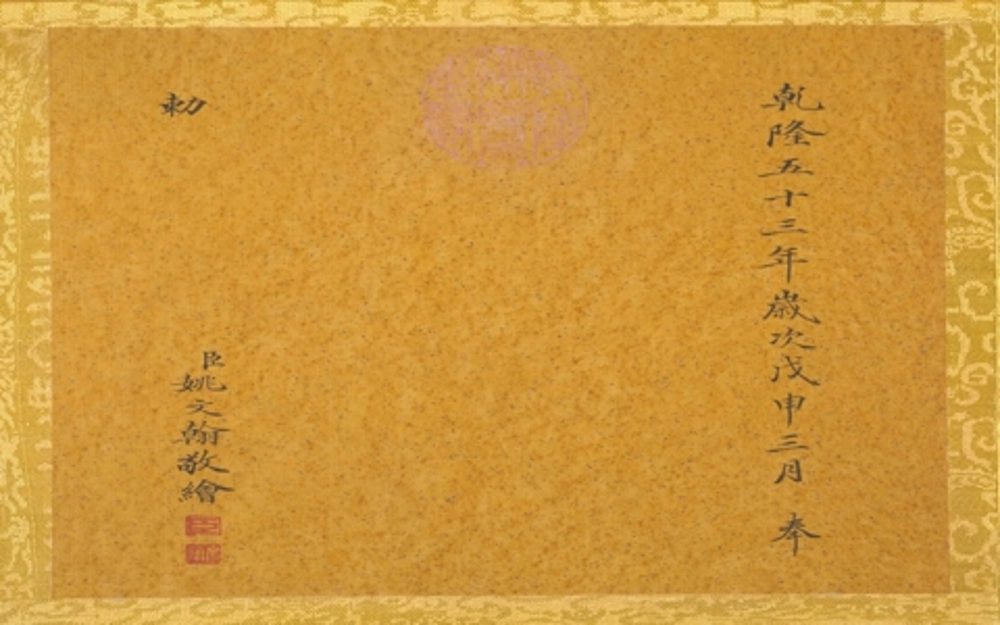 乾隆五十三年歲次戊申三月奉
勅
臣姚文瀚敬繪